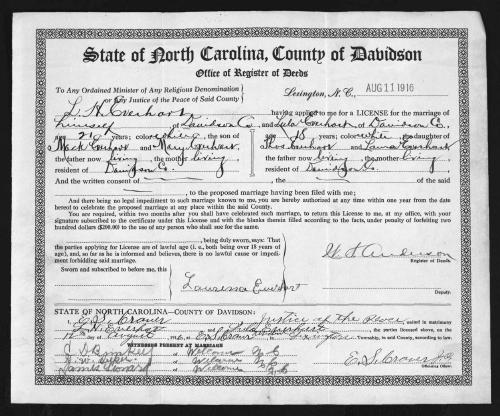 State of North Carolina, County of Davidson
Office of Register of Deeds
To Any Ordained Minister of Any Religious Denomination
or any Justice of the Peace of Said County
Lexington, N. C., AUG 11 1916
L. H. Everhart having applied to me for a LICENSE for the marriage of
himself of Davidson Co. and Lula Everhart of Davidson Co.
age 20 years; color white, the son of age 18 years; color white, the daughter of
Mack Everhart and Mary Everhart, and Laura Everhart
the father now living, the mother living, the father now living, the mother living,
resident of Davidson Co. resident of Davidson Co.
And the written consent of of the said
to the proposed marriage having been filed with me;
And there being no legal impediment to such marriage known to me, you are hereby authorized at any time within one year from the
date hereof to celebrate the proposed marriage at any place within the said County.
You are required, within two months after you shall have celebrated such marriage, to return this License to me, at my office, with your
signature subscribed to the certificate under this License and with the blanks therein filled according to the facts, under penalty of forfeiting two
hundred dollars ($200.00) to the use of any person who shall sue for the same.
being duly sworn, says: That the
parties applying for License are of lawful age (i. e., both being over 18 years of
age), and, so far as he is informed and believes, there is no lawful cause or impedi-
ment forbidding said marriage.
Register of Deeds.
Sworn and subscribed to before me, this
Everhart
Deputy.
STATE OF NORTH CAROLINA—COUNTY OF DAVIDSON:
I, E. S. Craver Justice of the Peace united in matrimony
L. H. Everhart and Lula Everhart the parties licensed above, on the
August 1916
WITNESSES PRESENT AT MARRIAGE
Welcome N C
Welcome N C
James Leonard Welcome N. C.
E. S. Craver
Officiating Officer.